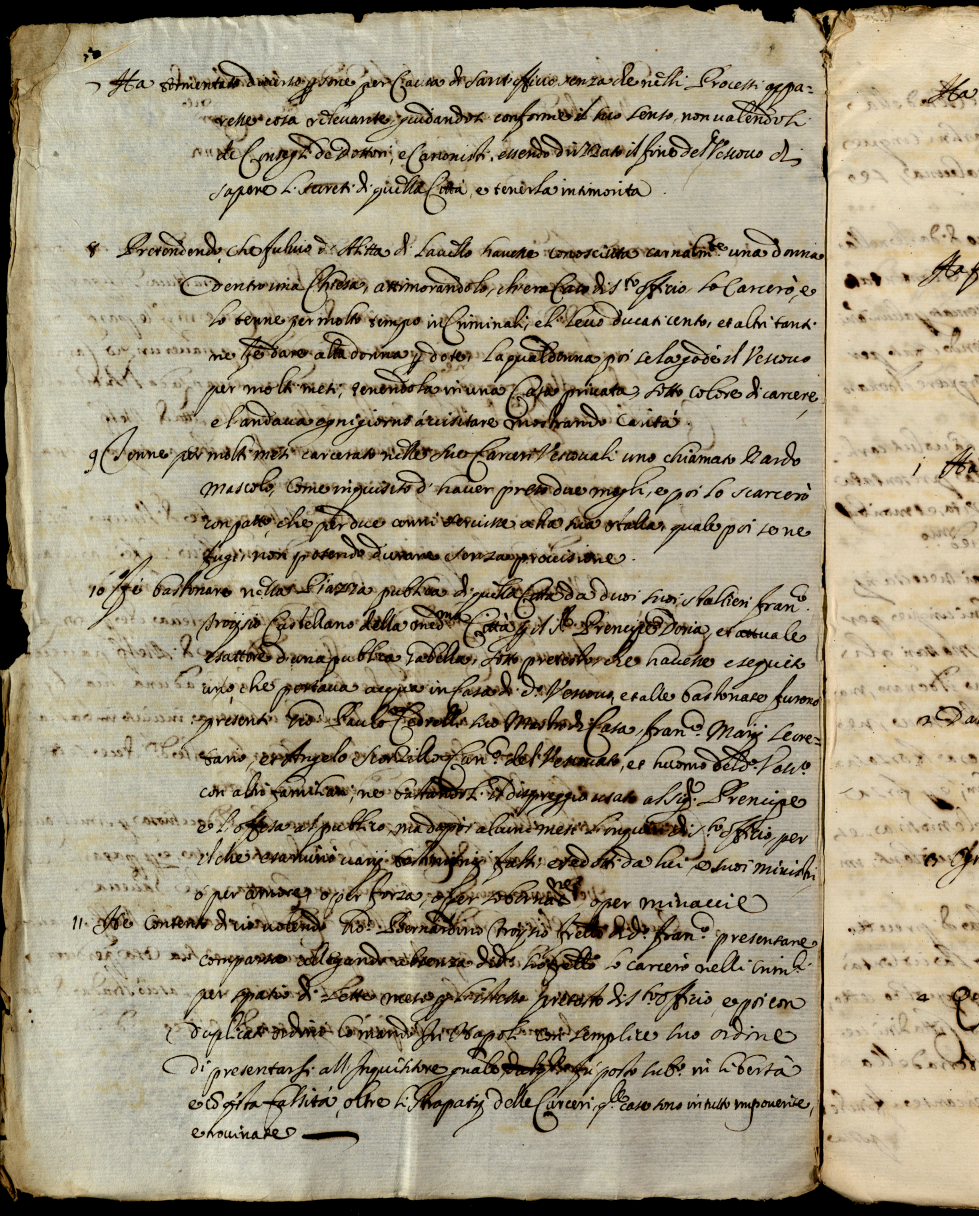 7 Ha tormentato diverse persone per Causa di Sant'officio senza che nelli Processi appa=
resse cosa rilevante, guidandosi conforme il suo senso, non valendosi
di Consegli de Dottori, e Canonisti, essendo il fine del Vescovo di
sapere li secreti di quella Città, e tenerla intimorita.
8 Pretendendo, che fulvio di di Lavello havesse conosciuta carnalmte una donna
dentro una Chiesa, attimorandolo, ch'era Caso di Sto officio lo Carcerò, e
lo tenne per molto tempo in Criminali, e li levò ducati cento, et altri tanti
ne fè dare alla donna p dote, la qual donna poi se la godè il Vescovo
per molti mesi, tenendola in una Casa privata, sotto colore di carcere,
e l'andava ogni giorno à visitare mostrando Carità.
9 Tenne per molti mesi carcerato nelle sue Carceri Vescovali uno chiamato Nardo
Mascolo, Come inquisito d'haver preso due mogli, e poi lo scarcerò
con patto, che per dece anni servisse alla sua stalla, quale poi se ne
fugì, non potendo durare senza provisione.
10 Fè bastonare nella Piazza publica di quella Città da duoi suoi stallieri Franco
Troysio Castellano della medma Città p il Sr Prencipe Doria, et attuale
esattore d'una publica Gabella, sotto pretesto che havesse eseguito
uno che portava acqua in Casa di do Vescovo, et alle bastonate furono
presenti Paulo suo Mastro di Casa, franco Marij
et Angelo Canco del Vescovato, et huomo del do Vesco
con altri familiari, ne bastandoli il dispreggio usato al Sigr Prencipe
e l'offesa al publico, ma dapoi alcuni mesi di Sto officio, per
il che esaminò varij testimonij falsi, da lui, e suoi ministri,
ò per amore, ò per forza, ò per ò per minaccie
11 Ne contento di ciò volendo Bernardino Troysio frello di do franco presentare
comparsa allegando absenza di do suo frello lo carcerò nelli crimli
per spatio di sette mesi p l'istesso pretesto di Sto Officio, e poi con
duplicati ordini Comandò In Napoli con semplice suo ordine
di presentarsi all'Inquisitore quale fu posto subo in libertà
e cò qsta falsità, oltre li strapatij delle Carceri, qlle case sono in tutto impoverite,
e rovinate